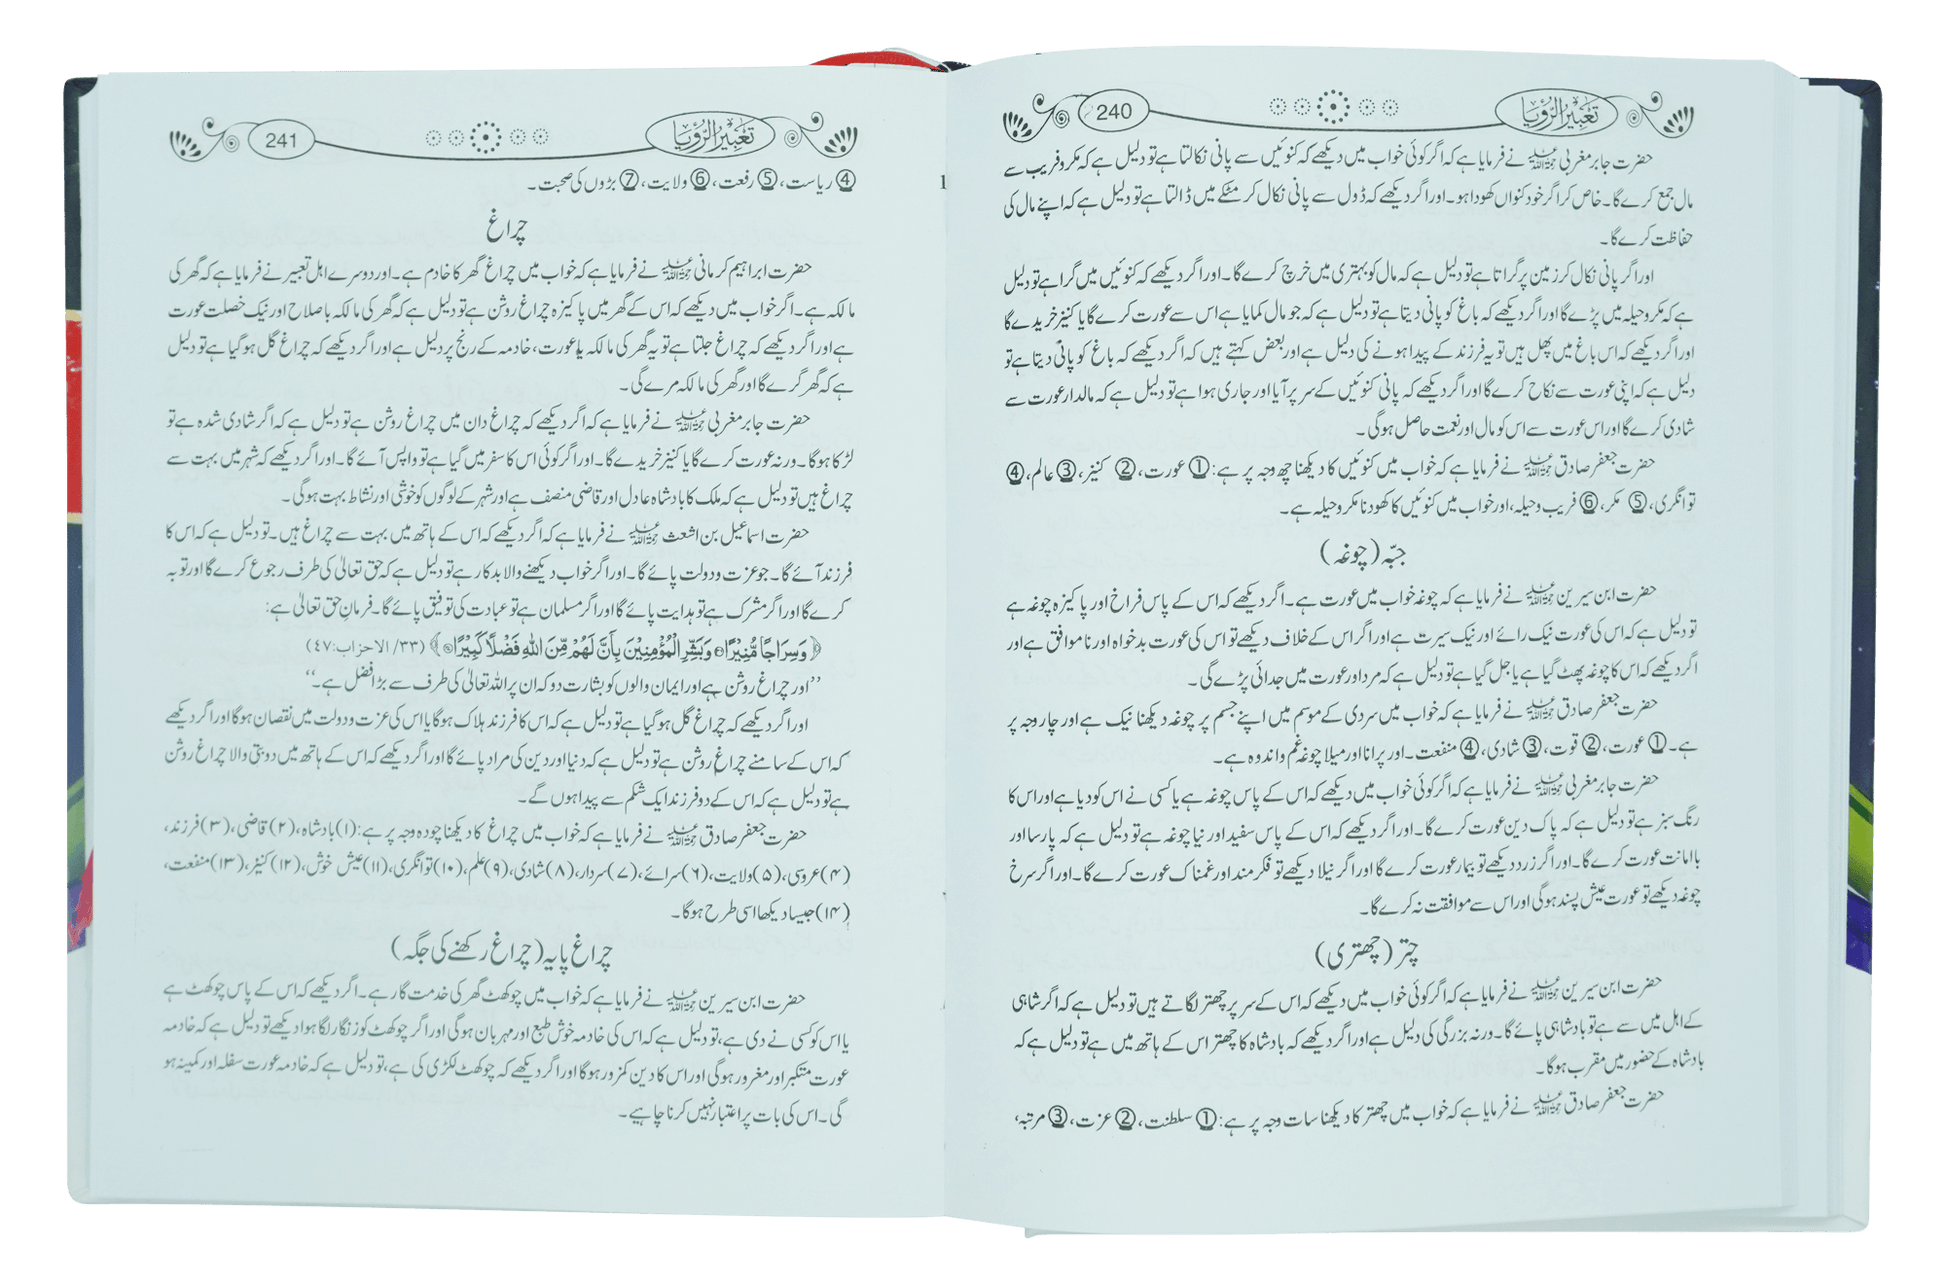 تعبیر الرؤیا
240
حضرت جابر مغربی رحمۃ اللہ علیہ نے فرمایا ہے کہ اگر کوئی خواب میں دیکھے کہ کنوئیں سے پانی نکالتا ہے تو دلیل ہے کہ مکر و فریب سے
مال جمع کرے گا۔ خاص کر اگر خود کنواں کھودا ہو۔ اور اگر دیکھے کہ ڈول سے پانی نکال کر مٹکے میں ڈالتا ہے تو دلیل ہے کہ اپنے مال کی
حفاظت کرے گا۔
اور اگر پانی نکال کر زمین پر گراتا ہے تو دلیل ہے کہ مال کو بہتری میں خرچ کرے گا۔ اور اگر دیکھے کہ کنوئیں میں گرا ہے تو دلیل
ہے کہ مکر و حیلہ میں پڑے گا اور اگر دیکھے کہ باغ کو پانی دیتا ہے تو دلیل ہے کہ جو مال کمایا ہے اس سے عورت کرے گا یا کنیز خریدے گا
اور اگر دیکھے کہ اس باغ میں پھل ہیں تو یہ فرزند کے پیدا ہونے کی دلیل ہے اور بعض کہتے ہیں کہ اگر دیکھے کہ باغ کو پانی دیتا ہے تو
دلیل ہے کہ اپنی عورت سے نکاح کرے گا اور اگر دیکھے کہ پانی کنوئیں کے سر پر آیا اور جاری ہوا ہے تو دلیل ہے کہ مالدار عورت سے
شادی کرے گا اور اس عورت سے اس کو مال اور نعمت حاصل ہو گی۔
حضرت جعفر صادق رحمۃ اللہ علیہ نے فرمایا ہے کہ خواب میں کنوئیں کا دیکھنا چھ وجہ پر ہے: ① عورت، ② کنیز، ③ عالم، ④
توانگری، ⑤ مکر، ⑥ فریب و حیلہ، اور خواب میں کنوئیں کا کھودنا مکر و حیلہ ہے۔
جبّہ (چوغہ)
حضرت ابن سیرین رحمۃ اللہ علیہ نے فرمایا ہے کہ چوغہ خواب میں عورت ہے۔ اگر دیکھے کہ اس کے پاس فراخ اور پاکیزہ چوغہ ہے
تو دلیل ہے کہ اس کی عورت نیک رائے اور نیک سیرت ہے اور اگر اس کے خلاف دیکھے تو اس کی عورت بدخواہ اور ناموافق ہے اور
اگر دیکھے کہ اس کا چوغہ پھٹ گیا ہے یا جل گیا ہے تو دلیل ہے کہ مرد اور عورت میں جدائی پڑے گی۔
حضرت جعفر صادق رحمۃ اللہ علیہ نے فرمایا ہے کہ خواب میں سردی کے موسم میں اپنے جسم پر چوغہ دیکھنا نیک ہے اور چار وجہ پر
ہے۔ ① عورت، ② قوت، ③ شادی، ④ منفعت۔ اور پرانا اور میلا چوغہ غم و اندوہ ہے۔
حضرت جابر مغربی رحمۃ اللہ علیہ نے فرمایا ہے کہ اگر کوئی خواب میں دیکھے کہ اس کے پاس چوغہ ہے یا کسی نے اس کو دیا ہے اور اس کا
رنگ سبز ہے تو دلیل ہے کہ پاک دین عورت کرے گا۔ اور اگر دیکھے کہ اس کے پاس سفید اور نیا چوغہ ہے تو دلیل ہے کہ پارسا اور
باامانت عورت کرے گا۔ اور اگر زرد دیکھے تو بیمار عورت کرے گا اور اگر نیلا دیکھے تو فکر مند اور غمناک عورت کرے گا۔ اور اگر سرخ
چوغہ دیکھے تو عورت عیش پسند ہوگی اور اس سے موافقت نہ کرے گا۔
چتر (چھتری)
حضرت ابن سیرین رحمۃ اللہ علیہ نے فرمایا ہے کہ اگر کوئی خواب میں دیکھے کہ اس کے سر پر چھتر لگاتے ہیں تو دلیل ہے کہ اگر شاہی
کے اہل میں سے ہے تو بادشاہی پائے گا۔ ورنہ بزرگی کی دلیل ہے اور اگر دیکھے کہ بادشاہ کا چھتر اس کے ہاتھ میں ہے تو دلیل ہے کہ
بادشاہ کے حضور میں مقرب ہوگا۔
حضرت جعفر صادق رحمۃ اللہ علیہ نے فرمایا ہے کہ خواب میں چھتر کا دیکھنا سات وجہ پر ہے: ① سلطنت، ② عزت، ③ مرتبہ،
تعبیر الرؤیا
241
④ ریاست، ⑤ رفعت، ⑥ ولایت، ⑦ بڑوں کی صحبت۔
چراغ
حضرت ابراہیم کرمانی رحمۃ اللہ علیہ نے فرمایا ہے کہ خواب میں چراغ گھر کا خادم ہے۔ اور دوسرے اہل تعبیر نے فرمایا ہے کہ گھر کی
مالکہ ہے۔ اگر خواب میں دیکھے کہ اس کے گھر میں پاکیزہ چراغ روشن ہے تو دلیل ہے کہ گھر کی مالکہ باصلاح اور نیک خصلت عورت
ہے اور اگر دیکھے کہ چراغ جلتا ہے تو یہ گھر کی مالکہ یا عورت، خادمہ کے رنج پر دلیل ہے اور اگر دیکھے کہ چراغ گل ہو گیا ہے تو دلیل
ہے کہ گھر گرے گا اور گھر کی مالکہ مرے گی۔
حضرت جابر مغربی رحمۃ اللہ علیہ نے فرمایا ہے کہ اگر دیکھے کہ چراغ دان میں چراغ روشن ہے تو دلیل ہے کہ اگر شادی شدہ ہے تو
لڑکا ہو گا۔ ورنہ عورت کرے گا یا کنیز خریدے گا۔ اور اگر کوئی اس کا سفر میں گیا ہے تو واپس آئے گا۔ اور اگر دیکھے کہ شہر میں بہت سے
چراغ ہیں تو دلیل ہے کہ ملک کا بادشاہ عادل اور قاضی منصف ہے اور شہر کے لوگوں کو خوشی اور نشاط بہت ہو گی۔
حضرت اسماعیل بن اشعث رحمۃ اللہ علیہ نے فرمایا ہے کہ اگر دیکھے کہ اس کے ہاتھ میں بہت سے چراغ ہیں۔ تو دلیل ہے کہ اس کا
فرزند آئے گا۔ جو عزت و دولت پائے گا۔ اور اگر خواب دیکھنے والا بدکار ہے تو دلیل ہے کہ حق تعالیٰ کی طرف رجوع کرے گا اور توبہ
کرے گا اور اگر مشرک ہے تو ہدایت پائے گا اور اگر مسلمان ہے تو عبادت کی توفیق پائے گا۔ فرمانِ حق تعالیٰ ہے:
﴿وَسِرَاجًا مُّنِيْرًا۝ وَبَشِّرِ الْمُؤْمِنِيْنَ بِاَنَّ لَهُمْ مِّنَ اللهِ فَضْلًا كَبِيْرًا۝﴾ (۳۳/ الاحزاب:۴۷)
’’اور چراغ روشن ہے اور ایمان والوں کو بشارت دو کہ ان پر اللہ تعالیٰ کی طرف سے بڑا فضل ہے۔‘‘
اور اگر دیکھے کہ چراغ گل ہو گیا ہے تو دلیل ہے کہ اس کا فرزند ہلاک ہوگا یا اس کی عزت و دولت میں نقصان ہوگا اور اگر دیکھے
کہ اس کے سامنے چراغ روشن ہے تو دلیل ہے کہ دنیا اور دین کی مراد پائے گا اور اگر دیکھے کہ اس کے ہاتھ میں دو بتی والا چراغ روشن
ہے تو دلیل ہے کہ اس کے دو فرزند ایک شکم سے پیدا ہوں گے۔
حضرت جعفر صادق رحمۃ اللہ علیہ نے فرمایا ہے کہ خواب میں چراغ کا دیکھنا چودہ وجہ پر ہے: (۱) بادشاہ، (۲) قاضی، (۳) فرزند،
(۴) عروسی، (۵) ولایت، (۶) سرائے، (۷) سردار، (۸) شادی، (۹) علم، (۱۰) توانگری، (۱۱) عیش خوش، (۱۲) کنیز، (۱۳) منفعت،
(۱۴) جیسا دیکھا اسی طرح ہوگا۔
چراغ پایہ (چراغ رکھنے کی جگہ)
حضرت ابن سیرین رحمۃ اللہ علیہ نے فرمایا ہے کہ خواب میں چوکھٹ گھر کی خدمت گار ہے۔ اگر دیکھے کہ اس کے پاس چوکھٹ ہے
یا اس کو کسی نے دی ہے، تو دلیل ہے کہ اس کی خادمہ خوش طبع اور مہربان ہوگی اور اگر چوکھٹ کو زنگار لگا ہوا دیکھے تو دلیل ہے کہ خادمہ
عورت متکبر اور مغرور ہوگی اور اس کا دین کمزور ہوگا اور اگر دیکھے کہ چوکھٹ لکڑی کی ہے، تو دلیل ہے کہ خادمہ عورت سفلہ اور کمینہ ہو
گی۔ اس کی بات پر اعتبار نہیں کرنا چاہیے۔